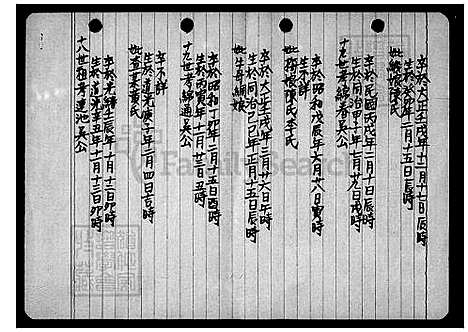 十八世祖考連池吳公
生於道光辛五年十月十二日卯時
卒於光緒壬辰年十月十二日卯時
妣春葉黃氏
生於道光庚子年二月四日吉時
卒不詳
十九世考綿通吳公
生於丙寅年十一月廿三日丑時
卒於昭和丁卯年二月十五日酉時
妣生綢娘
生於同治己巳年十二月十五日辰時
卒於大正壬戌年二月廿六日午時
妣娘陳氏李氏
生不詳
卒於昭和戊辰年六月八日寅時
十九世考綿春吳公
生於同治甲子年七月廿九日戌時
卒於民國丙戌年二月十日辰時
妣娘陳氏
生於癸卯年二月十五日辰時
卒於大正壬戌年十二月十七日辰時
FamilySearch